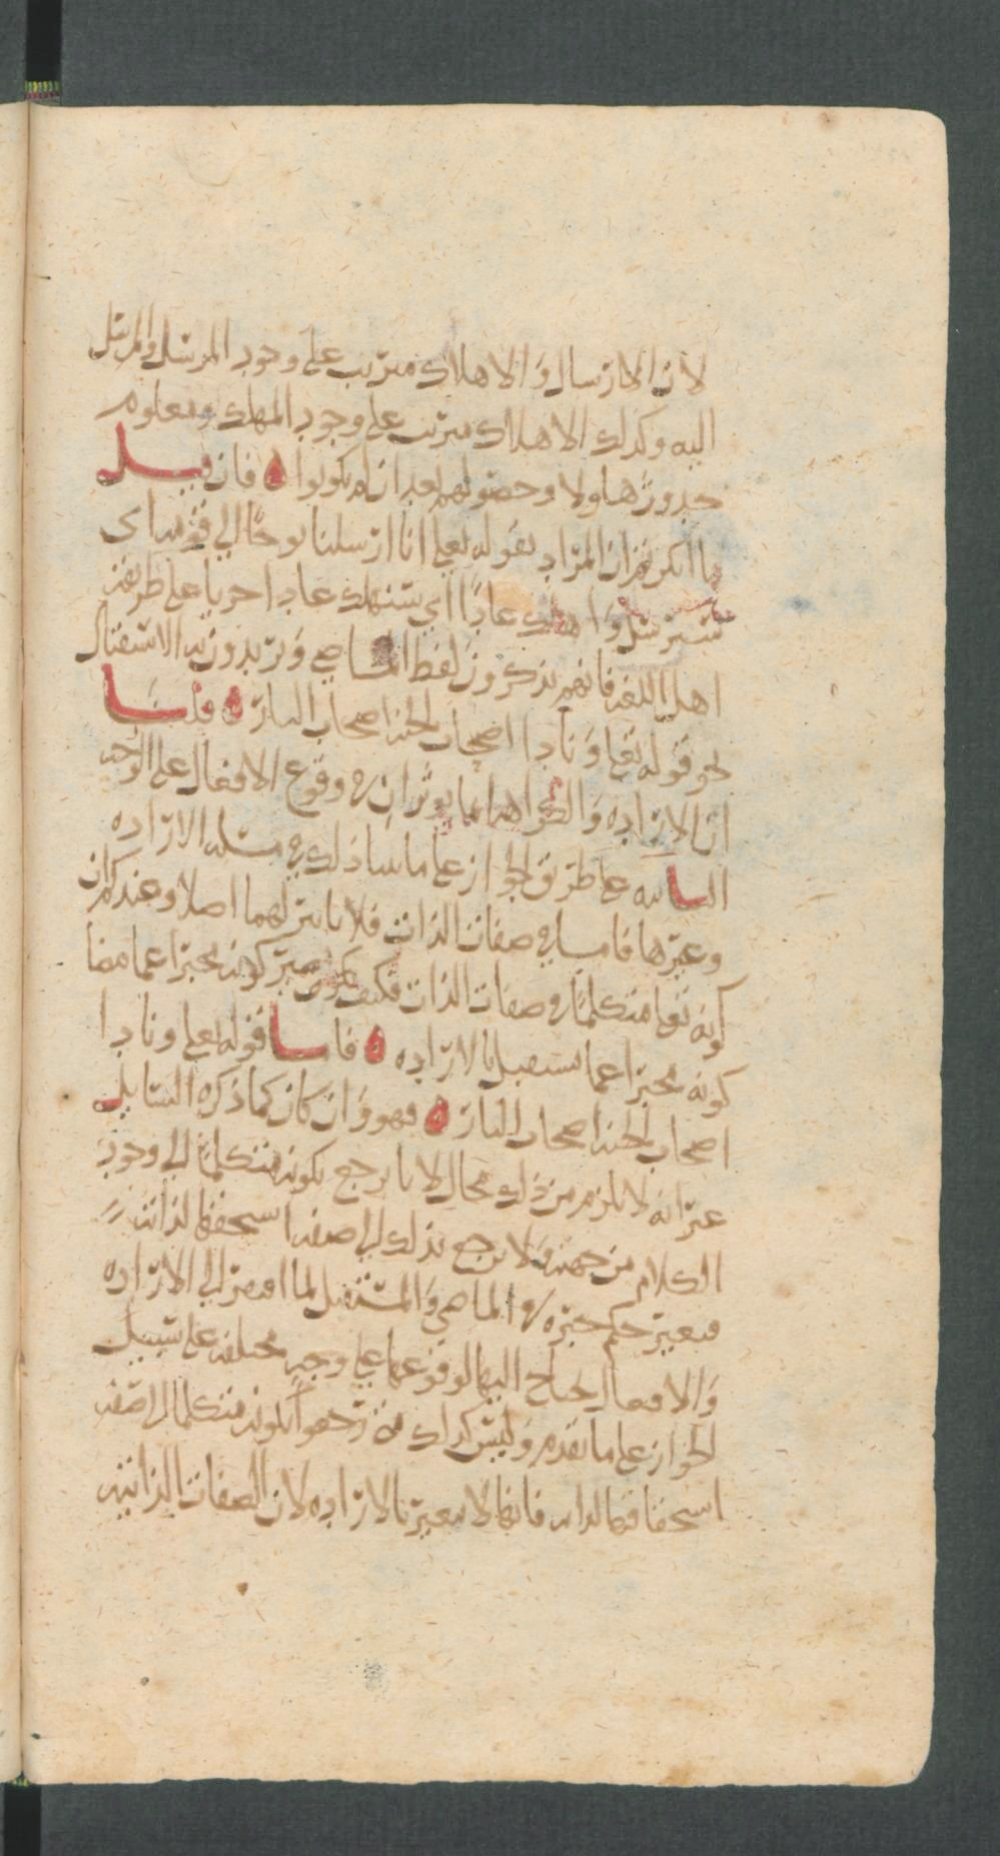 لان الارسال والاهلاك مترتب على وجود المرسل والمرسل
اليه وكذلك الاهلاك مترتب على وجود المهلك ومعلوم
حدوثها اولا وحصولهم بعد ان لم يكونوا ه فان قيل
ما انكرتم ان المراد بقوله تعلى انا ارسلنا نوحا الى قومه اى
سنرسل و اهلك عادا اي سنهلك عادا جريا على طريقة
اهل اللغه فانهم يذكرون لفظ الماضي ويريدون به الاستقبال
نحو قوله تعلى ونادا اصحاب الجنه اصحاب النار ه قلنا
ان الارادة والكراهه انما يوثران في وقوع الافعال على الوجه
على طريق الجواز على ما بينا ذلك في مسله الارادة
وغيرها فاما في صفات الذات فلا تاثير لهما اصلا وعندكم ان
كونه تعلى متكلما من صفات الذات فكيف يكون كونه مخبرا عما مضا
كونه مخبرا عما يستقبل بالارادة ه فاما قوله تعلى ونادا
اصحاب الجنه اصحاب النار ه فهو وان كان كما ذكره السايل
غير انه لا يلزم من ذلك محال لانا نرجع بكونه متكلما الى وجود
الكلام من جهته ولا نرجع بذلك الى صفه استحقها لذاته
فيعتبر حكم خبره في الماضي والمستقبل لما افتقر الى الارادة
والافعال يحتاج اليها لوقوعها على وجوه مختلفه على سبيل
الجواز على ما تقدم وليس كذلك من رجعوا بكونه متكلما الى صفه
استحقاقها لذاته فانها لا تتغير بالارادة لان الصفات الذاتيه